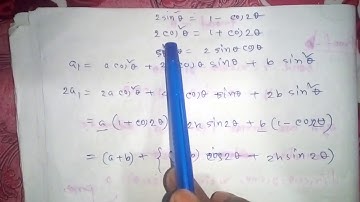 2 sin²θ = 1 - cos2θ
2 cos²θ = 1 + cos2θ
= 2 sinθ cosθ
a₁ = a cos²θ + 2 cosθ sinθ + b sin²θ
2a₁ = 2a cos²θ + cosθ sinθ + 2b sin²θ
= a (1 - cos2θ) 2h sin2θ + b (1 - cos2θ)
= (a+b) + { ) cos2θ + 2h sin2θ }